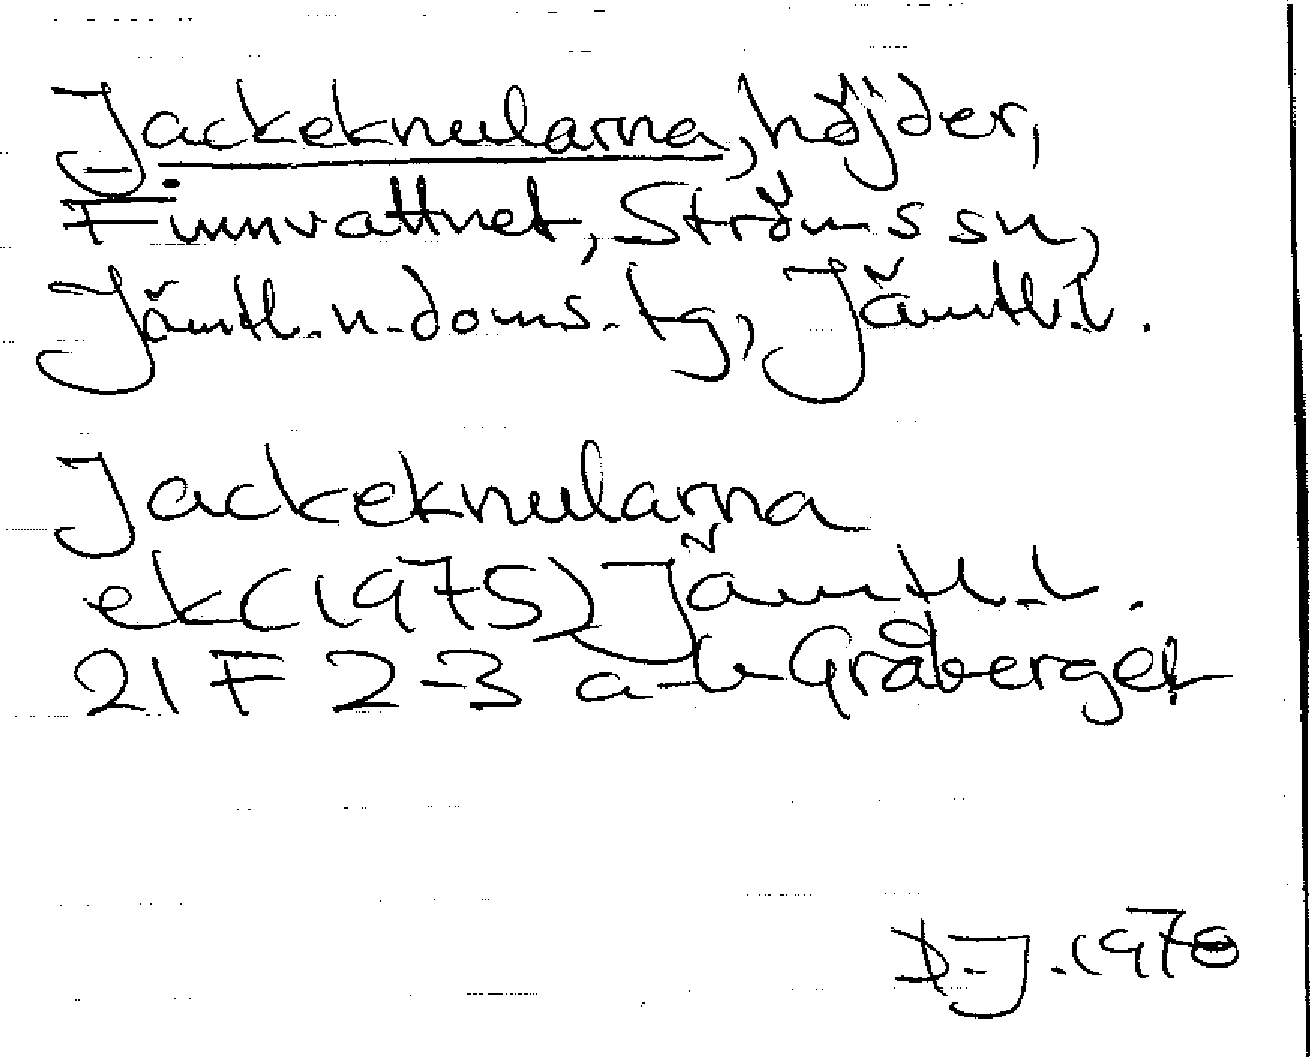 Jackeknularna, höjder,
Finnvattnet, Ströms sn,
Jämtl. n. doms. tg, Jämtl. l.
Jackeknularna
ek (1975) Jämtl. l.
21 F 2-3 a-b Gråberget
D.J. 1978